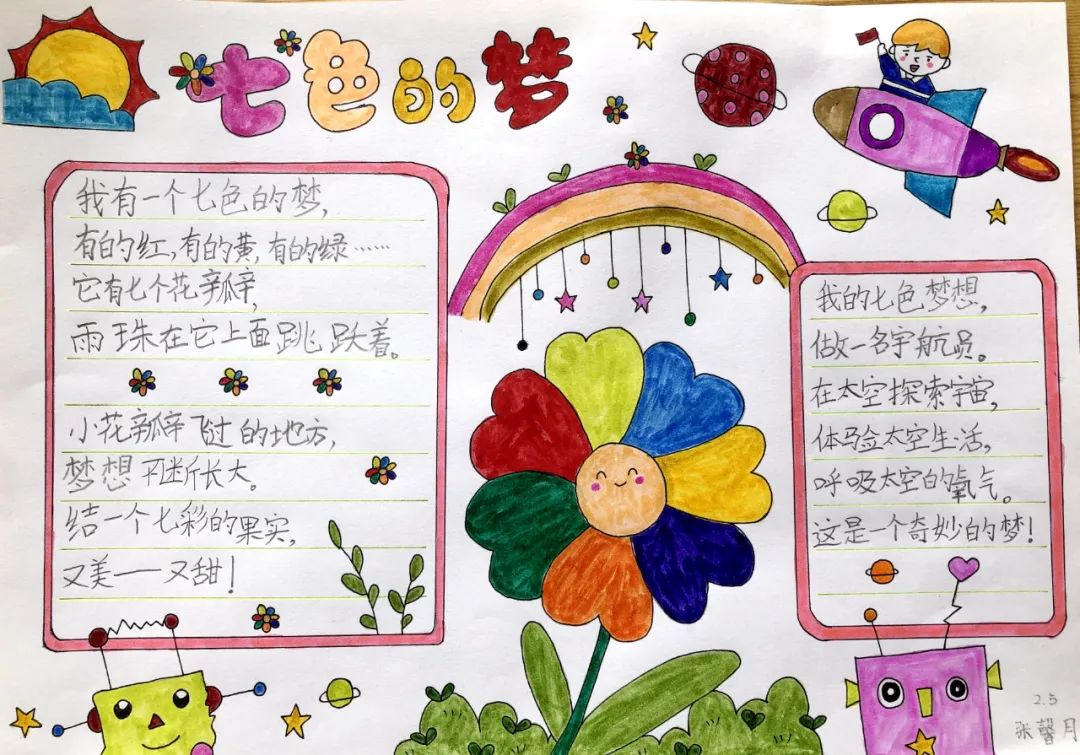 七色的梦
我有一个七色的梦,
有的红,有的黄,有的绿……
它有七个花瓣,
雨珠在它上面跳跃着。
小花瓣飞过的地方,
梦想不断长大。
结一个七彩的果实,
又美——又甜!
我的七色梦想,
做一名宇航员。
在太空探索宇宙,
体验太空生活,
呼吸太空的氧气。
这是一个奇妙的梦!
2.5
张馨月